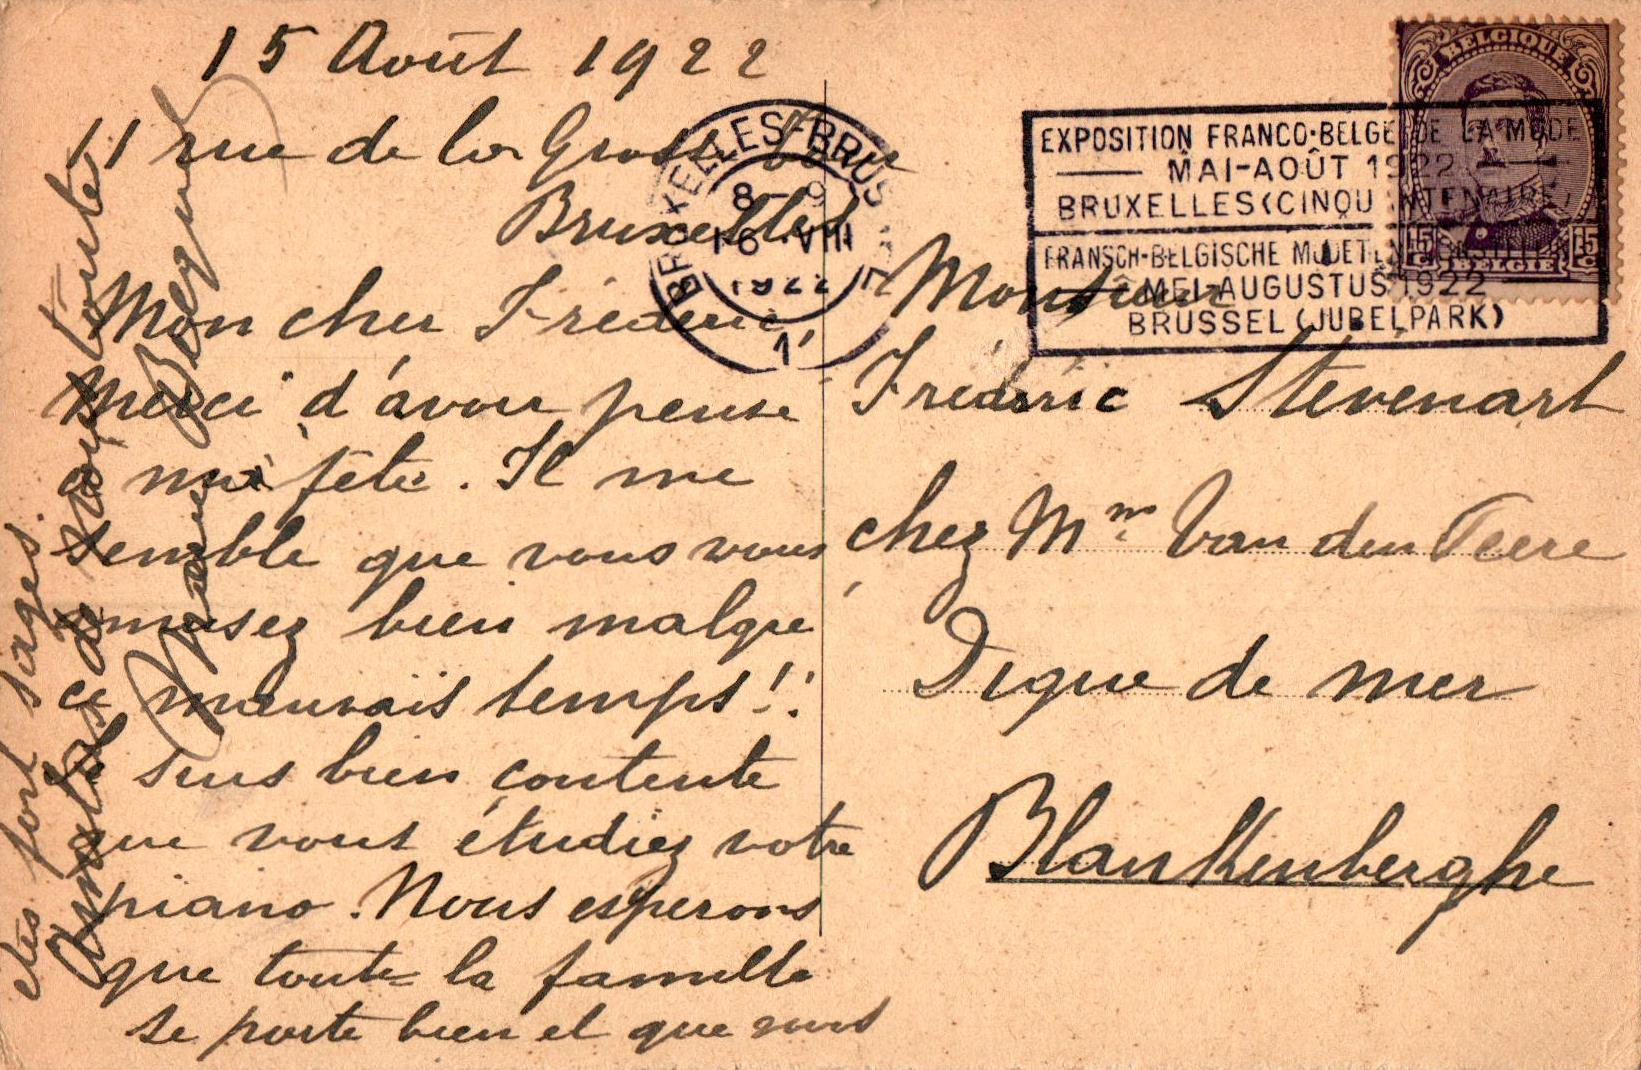 15 Août 1922
11 rue de la Grosse Tour
Bruxelles
Mon cher Frédéric
Merci d'avoir pensé
à ma fête. Il me
semble que vous vous
amusez bien malgré
ce mauvais temps!!
Je suis bien contente
que vous étudiez votre
piano. Nous esperons
que toute la famille
se porte bien et que vous
etes fort sages.
Amitiés de nous toutes
BRUXELLES-BRUSSEL
8-9
16 VIII
1922
1
EXPOSITION FRANCO-BELGE DE LA MODE
MAI-AOÛT 1922
BRUXELLES (CINQUANTENAIRE)
FRANSCH-BELGISCHE MODETENTOONSTELLING
MEI-AUGUSTUS 1922
BRUSSEL (JUBELPARK)
BELGIQUE
15 c 15 c
BELGIË
Monsieur
Frédéric Stevenart
chez Mme Van den Peere
Digue de mer
Blankenberghe